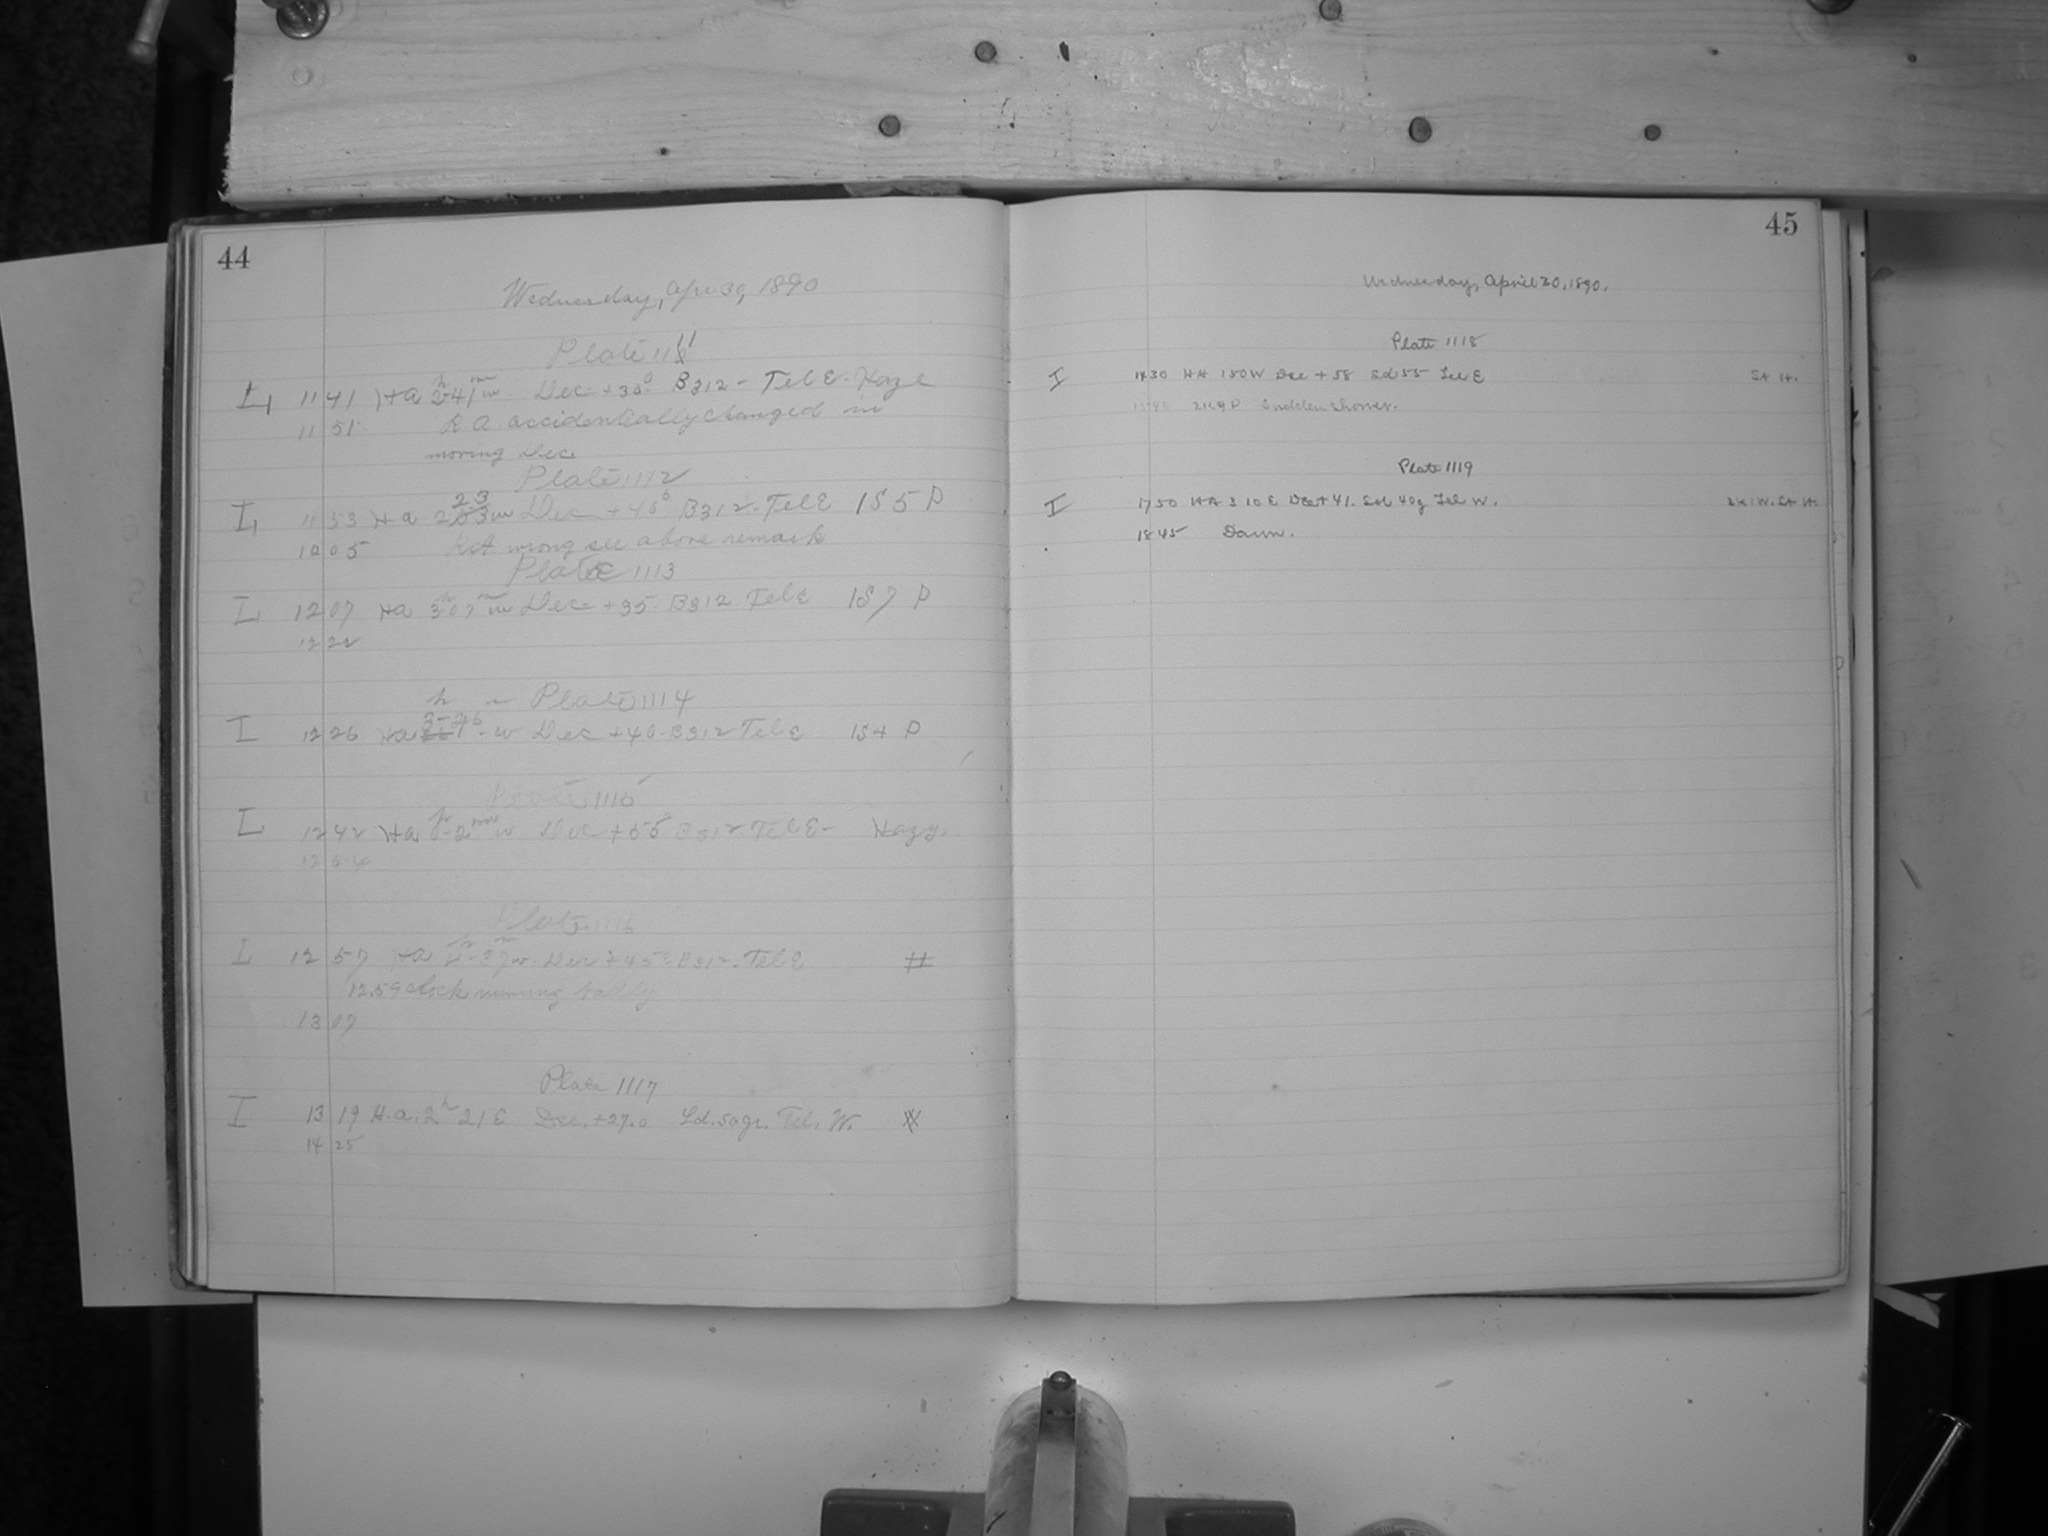 44
Wednesday, Apr 30, 1890
Plate 1111
I 11 41 Ha 2h 41m w Dec +30° B312 - Tel E. Haze
11 51 R.A. accidentally changed in
moving Dec
Plate 1112
I 11 53 Ha 2 23 w Dec +40° B312. Tel E 1S 5 P
12 05 RA wrong see above remark
Plate 1113
I 12 07 Ha 3h 07m w Dec +35 B312 Tel E 1S 7 P
12 22
Plate 1114
I 12 26 Ha w Dec +40 B312 Tel E 1S 4 P
Plate 1115
I 12 42 Ha w Dec +55° B312. Tel E - Hazy.
12 54
Plate 1116
I 12 57 Ha w. Dec +45° B312. Tel E #
12.59 clock running badly
13 07
Plate 1117
I 13 19 H.a. 2h 21 E Dec. +27.0 Sd. 50gr. Tel. W.
14 25
45
Wednesday, April 30, 1890.
Plate 1118
I 14 30 HA 1 50 W Dec +58 Sd 55 Tel E St H.
Sudden shower.
Plate 1119
I 17 50 HA 3 10 E Dec +41. Sd 40g Tel W. St H.
18 45 Dawn.